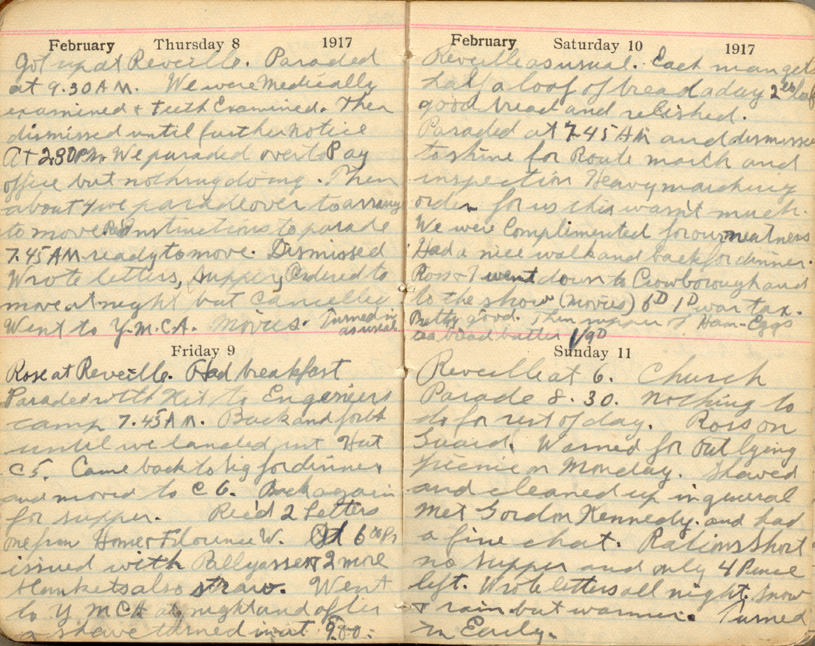 February Thursday 8 1917
Got up at Reveille. Paraded
at 9.30 A.M. We were Medically
examined + teeth Examined. Then
dismissed until further notice
At 2.30 PM We paraded over to Pay
office but nothing doing. Then
about we parade over to
to move. instructions to parade
7.45 AM ready to move. Dismissed
Wrote letters, supper, Ordered to
move at night but cancelled
Went to Y.M.C.A. Movies. Turned in
as usual.
Friday 9
Rose at Reveille. Had breakfast
Paraded with Kit to Engineers
camp 7.45 A.M. Back and forth
until we landed in Hut
C5. Came back to for dinner
and moved to C 6. Back again
for supper. Rec'd 2 letters
one from Home + Florence W. At 6
issued with 2 more
blankets also straw. Went
to Y M C A at night and after
a shave turned in at
February Saturday 10 1917
Reveille as usual. Each man gets
half a loaf of bread a day
good bread and relished.
Paraded at 7.45 AM and dismissed
to shine for Route march and
inspection Heavy marching
order for us this wasn't much.
We were Complimented for our neatness
Had a nice walk and back for dinner.
Ross + I went down to Crowborough and
to the show (Movies) 6D 1D war tax.
Pretty good. Then supper of Ham-Eggs
tea bread butter 1/9D
Sunday 11
Reveille at 6. Church
Parade 8.30. Nothing to
do for rest of day. Ross on
Guard. Warned for out lying
on Monday. Shaved
and cleaned up in general
Met Gordon Kennedy. and had
a fine chat. Rations Short
no supper and only 4 Pence
left. Wrote letters all night. Snow
+ rain but warmer. Turned
in Early.